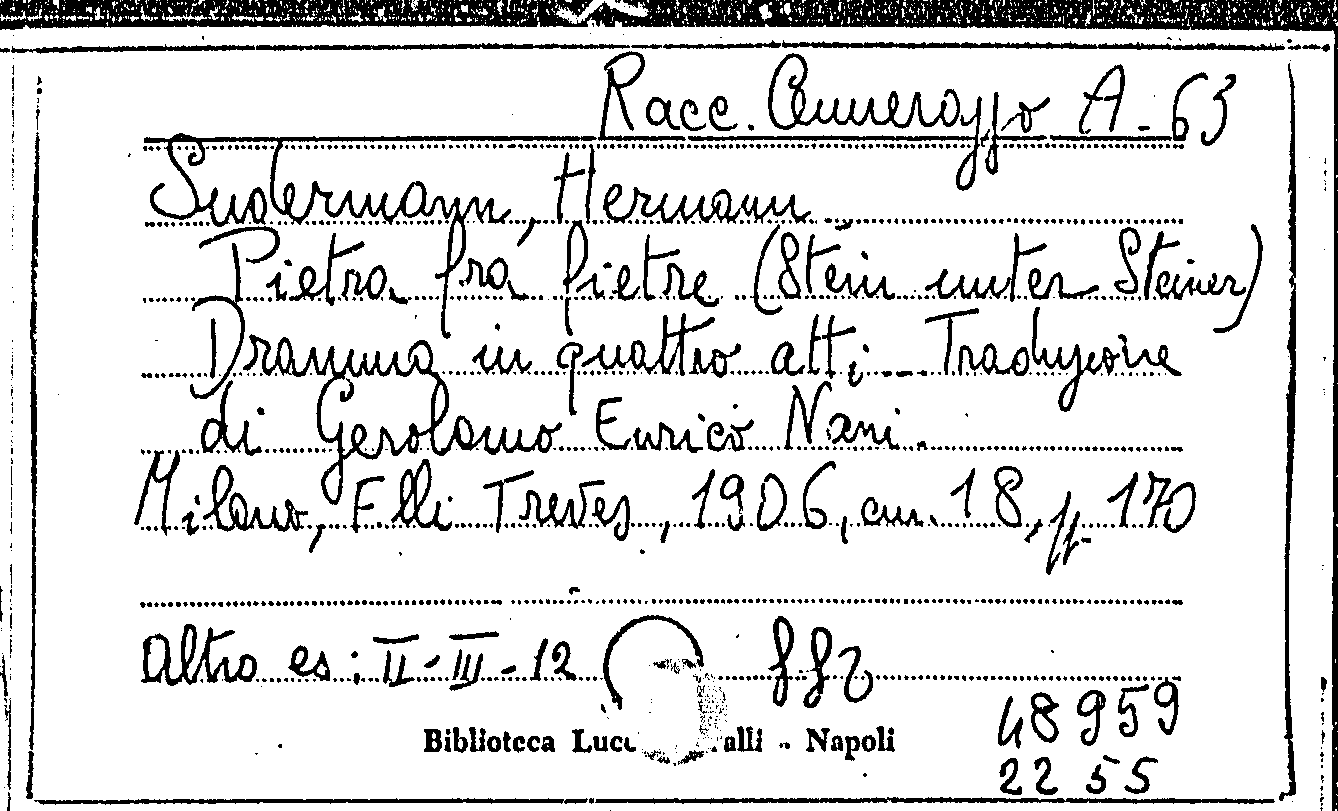 Racc. Cennerazzo A - 63
Sudermann, Hermann
Pietra fra pietre (Stein unter Steiner)
Dramma in quattro atti - Traduzione
di Gerolamo Enrico Nani.
Milano, F.lli Treves, 1906, cm. 18, pp. 170
Altro es: II - III - 12
Biblioteca Lucc alli - Napoli
48959
22 55